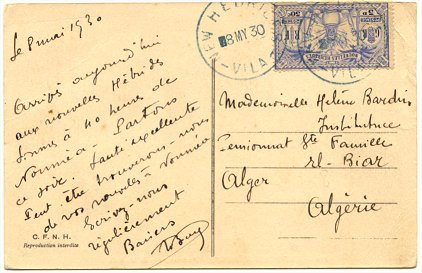 Le 8 mai 1930
Arrivés aujourd'hui
aux nouvelles Hébrides
sommes à 40 heures de
Nouméa - Partons
ce soir. Santé excellente
Peut être trouverons-nous
de vos nouvelles à Nouméa
Ecrivez-nous
régulièrement
Baisers
C. F. N. H.
Reproduction interdite
NEW HEBRIDES
8 MY 30
VILA
VILA
Mademoiselle Hélène Bardin
Institutrice
Pensionnat Ste Famille
El-Biar
Alger
Algérie